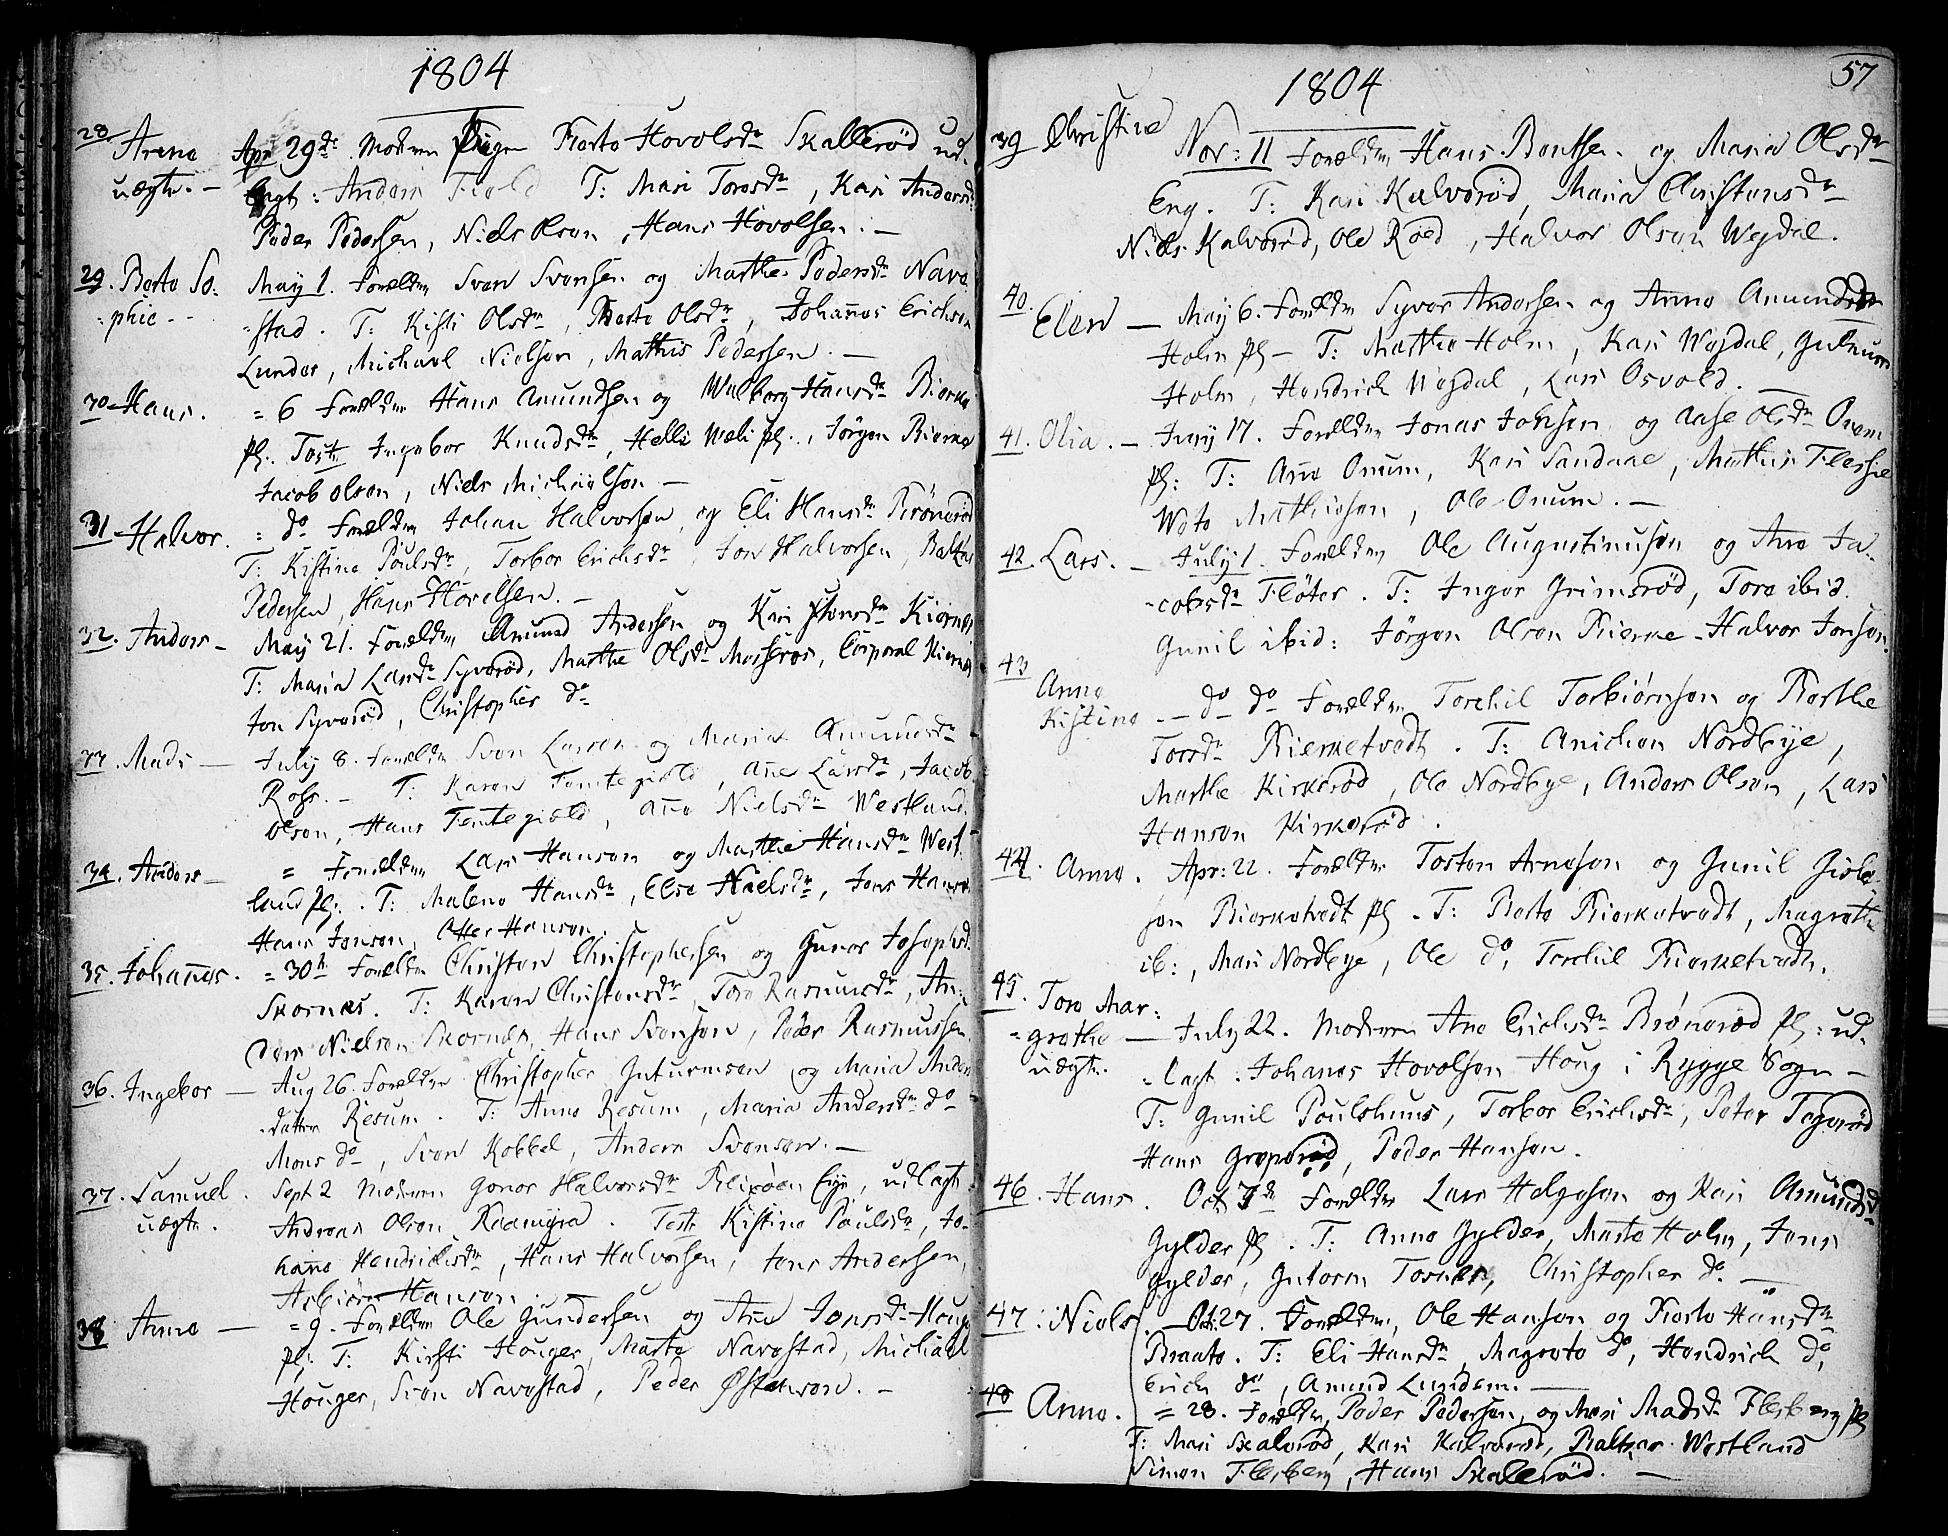 1804
28 Arene Apr 29de Moderen Pigen Berte Hovelsdr Skallerød ud-
uægte. - lagt: Anders T: Mari Toresdr, Kari Andersdr
Peder Pedersen, Niels Olson, Hans Hovelsen. -
29. Berte So- May 1. Forældre Sven Svensen og Marthe Pedersdr Nave-
-phie - - -stad. T: Kisti Olsdr, Berte Olsdr, Johannes Erichson
Lunder, Michael Nielson, Mathis Pedersen. -
30 - Hans. = 6 Forældre Hans Amundsen og Walborg Hansdr Bierke
pl: Test: Ingebor Knudsdr, Helli Wæli pl., Jørgen Bierke
Jacob Olson, Niels Michaelson -
31 - Halvor. = do Forældre Johan Halvorsen og Eli Hansdr Brønerød
T: Kistine Poulsdr, Torbor Erichsdr, Jon Halvorsen, Baltzer
Pedersen, Hans Hovelsen. -
32. Anders - May 21. Forældre Amund Andersen og Kari Kiernes
T: Maria Larsdr Syverød, Marthe Olsdr Mosseros, Corporal Kiernes
Jon Syverød, Christopher do
33. Mads - July 8. Forældre Sven Larson og Maria Amundsdr
Røhr. - T: Karen Tomtegield, Ane Larsdr, Jacob
Olson, Hans Tomtegield, Ane Nielsdr Westlund.
34. Anders - = Forældre Lars Hanson og Marthe Hansdr West-
lund pl: . T: Malene Hansdr, Else Nielsdr, Jens Hanson
Hans Jonson, Otter Hanson.
35. Johannes. = 30te Forældre Christen Christophersen og Gunor Josephsd.
Skornes. T: Karen Christensdr, Tore Rasmusdr, An-
ders Nielson Skornes, Hans Svenson, Peder Rasmussen
36. Ingebor - Aug 26. Forældre Christopher Guturmsen og Maria Anders
datter Resum. T: Anne Resum, Maria Andersdr do
Mons do, Sven Kobbel, Anders Svenson. -
37. Samuel. Sept 2 Moderen Gonor Halvorsdr Blixøen Eye, udlagt
uægte. Andreas Olson Kaamyra. Test: Kistine Poulsdr, Jo-
hanne Hendrichsdr, Hans Halvorsen, Jens Andersen,
Asbiørn Hanson.
38 Anne - = 9. Forældre Ole Gundersen og Ane Jonsdr Houge
pl: T: Kirsti Houger, Marte Navestad, Michael
Houger, Sven Navestad, Peder Østenson. -
57
1804
39 Christine Nov: 11 Forældre Hans Bentsen og Maria Olsdr
Eng. T: Kari Kalverød, Maria Christensdr
Niels Kalverød, Ole Roed, Halvor Olson Wejdal.
40. Elen - May 6. Forældre Syver Andersen og Anne Amundsdr
Holm pl - T: Marthe Holm, Kari Wejdal, Gulmun
Holm, Hendrich Wejdal, Lars Osvold. -
41. Olia. - Juny 17. Forældre Jonas Johsen og Aase Olsdr Onum
pl: T: Ane Onum, Kari Sandaae, Mathis Flesche
Mathisen, Ole Onum. -
42. Lars. - July 1. Forældre Ole Augustinusøn og Ane Ja-
-cobsdr Fløter. T: Inger Grimsrød, Tore ibid.
Gunil ibid: Jørgen Olson Bierke - Halvor Jonson.
43 Anne
Kistine - - do do Forældre Torchil Torbiørnson og Berthe
Torsdr Bierketvedt. T: Anichen Nordbye,
Marthe Kirkerød, Ole Nordbye, Anders Olson, Lars
Hanson Kirkerød.
44. Anne. Apr: 22. Forældre Tosten Arneson og Gunil Gisle-
Bierketvedt pl. T: Berte Bierketvedt, Magrethe
ib:, Mari Nordbye, Ole do, Torchil Bierketvedt.
45. Tore Mar-
-grethe - July 22. Moderen Ane Erichsdr Brønerød pl: ud-
uægte. -lagt. Johanes Hovelson Houg i Rygge Sogn -
T: Gunil Poulshuus, Torbor Erichsdr, Peter Tegnerød
Hans Greperød, Peder Hanson.
46. Hans. Oct 7de Forældre Lars Helgeson og Kari Amundsdr
Gylder pl. T: Anne Gylder, Marte Holm, Jens
Gylder, Gutorm Tosnes, Christopher do. -
47: Niels. - Oct: 27. Forældre, Ole Hanson og Berte Hansdr
Braate. T: Eli Hansdr, Magrete do, Hendrich do,
Erich do, Amund Lundem. -
48 Anne. = 28. Forældre Peder Pedersen, og Mari Madsdr Flesberg pl
T: Mari Skalerød, Kari Kalverød, Baltzer Westlund
Simon Flesberg, Hans Skalerød. -